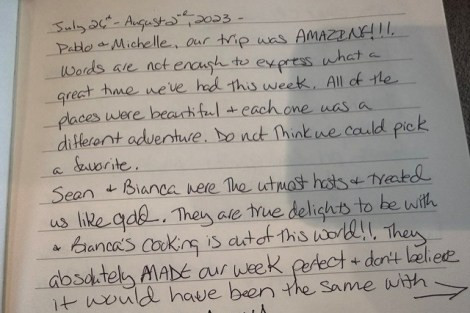 July 26th - August 2nd, 2023 -
Pablo & Michelle, our trip was AMAZING!!!.
Words are not enough to express what a
great time we've had this week. All of the
places were beautiful + each one was a
different adventure. Do not Think we could pick
a favorite.
Sean & Bianca were The utmost hosts & treated
us like gold. They are true delights to be with
& Bianca's cooking is out of This world!! They
absolutely MADE our week perfect + don't believe
it would have been the same with →